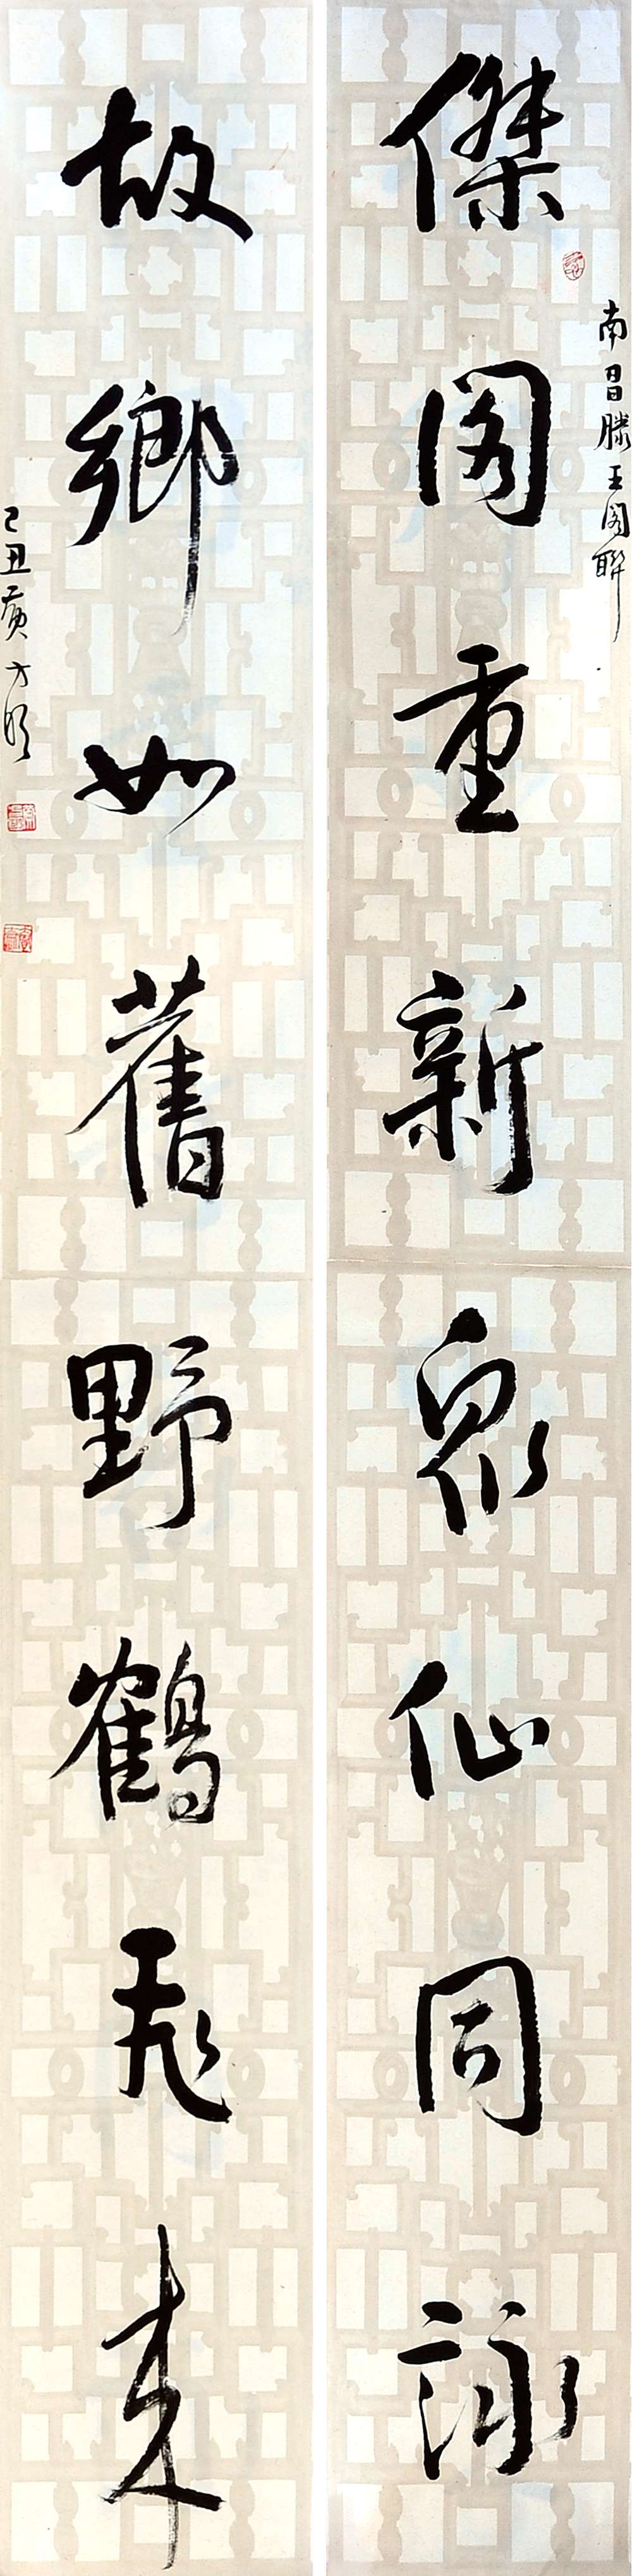 南昌滕王阁聯
傑阁重新眾仙同詠
故鄉如舊野鶴飛来
己丑黄方明